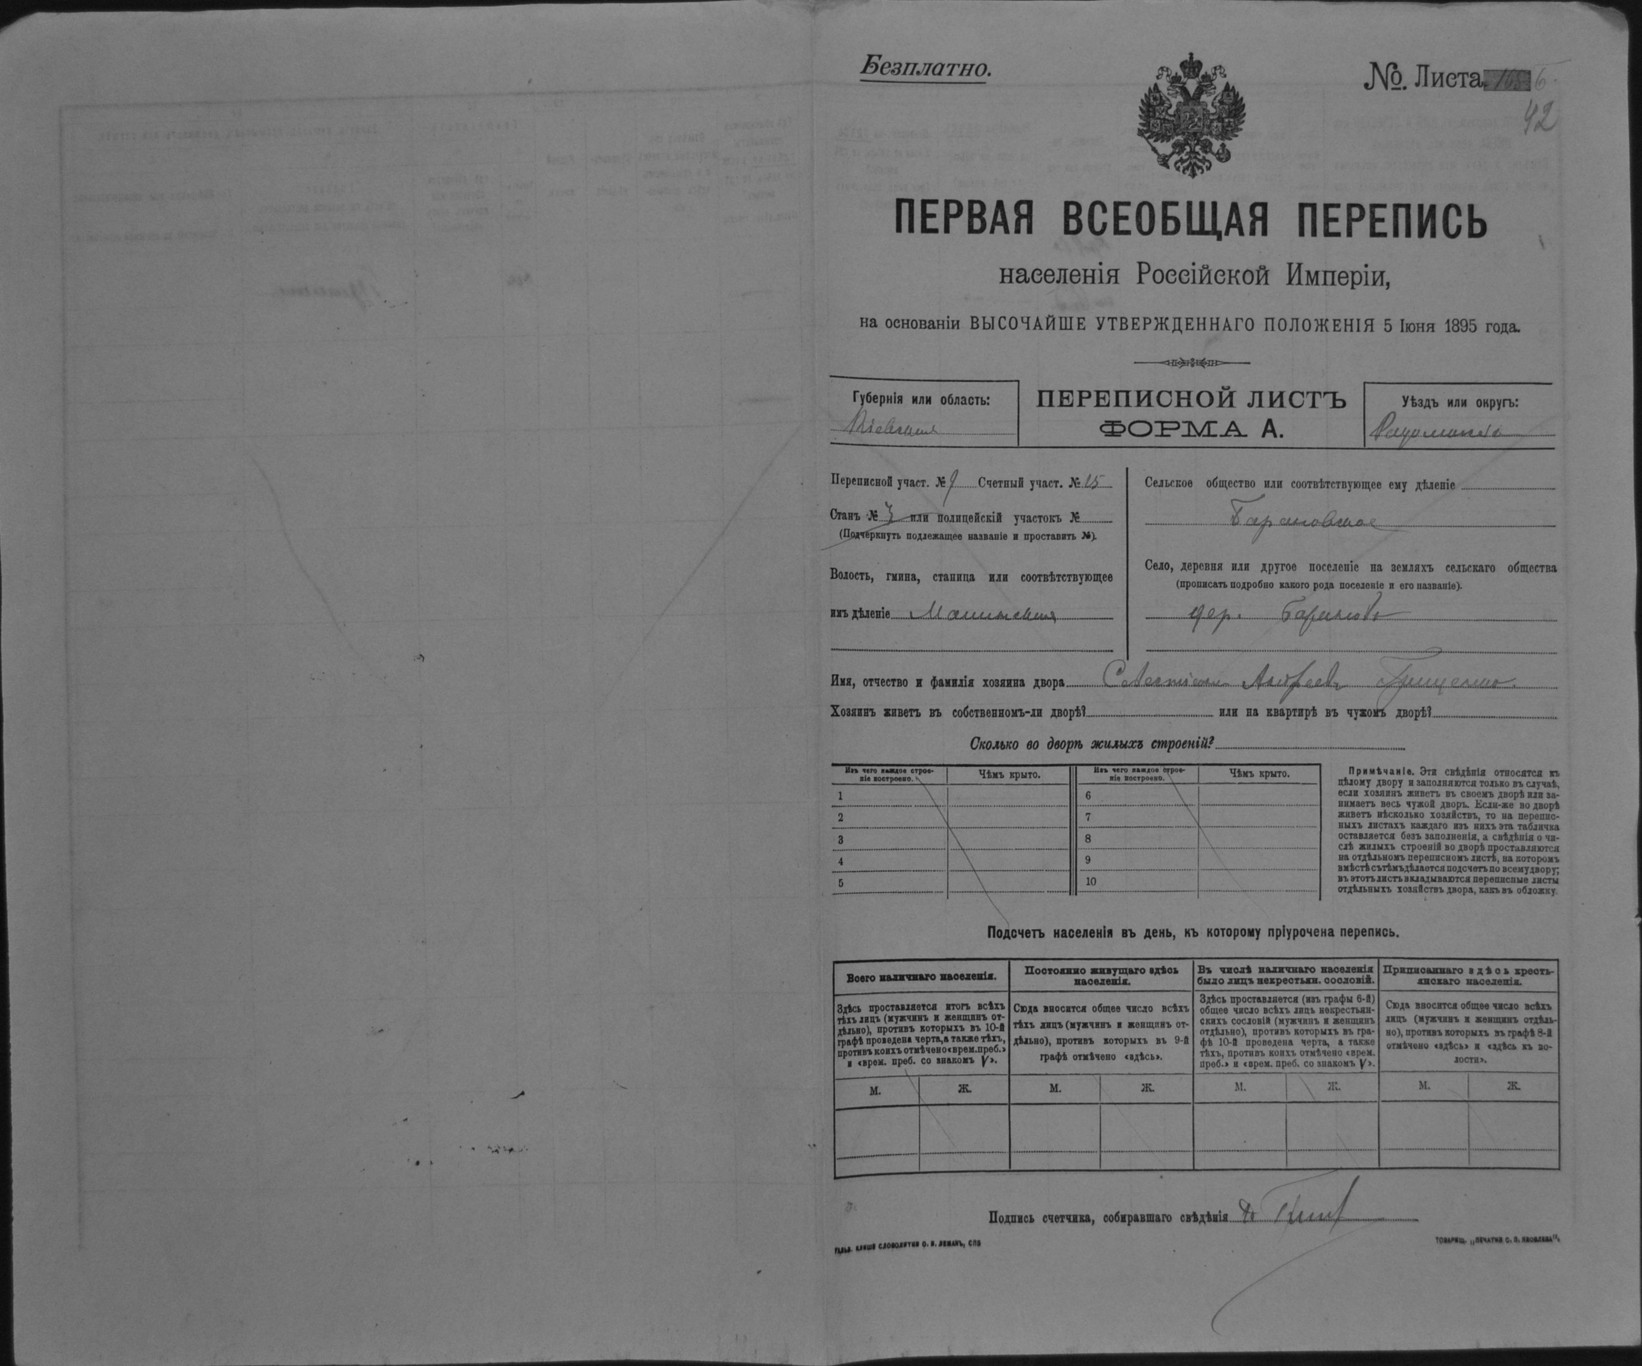 Безплатно.
№. Листа
42
ПЕРВАЯ ВСЕОБЩАЯ ПЕРЕПИСЬ
населенія Россійской Имперіи,
на основаніи ВЫСОЧАЙШЕ УТВЕРЖДЕННАГО ПОЛОЖЕНІЯ 5 Іюня 1895 года.
Губернія или область:
Кіевская
ПЕРЕПИСНОЙ ЛИСТЪ
ФОРМА А.
Уѣздъ или округъ:
Переписной участ. № 9 Счетный участ. № 15
Станъ № 3 или полицейскій участокъ №
(Подчеркнуть подлежащее названіе и проставить №).
Волость, гмина, станица или соотвѣтствующее
имъ дѣленіе Малинская
Сельское общество или соотвѣтствующее ему дѣленіе
Барановское
Село, деревня или другое поселеніе на земляхъ сельскаго общества
(прописать подробно какого рода поселеніе и его названіе).
дер.
Имя, отчество и фамилія хозяина двора Севастіанъ Андреевъ Грищенко.
Хозяинъ живетъ въ собственномъ-ли дворѣ? или на квартирѣ въ чужомъ дворѣ?
Сколько во дворѣ жилыхъ строеній?
Изъ чего каждое строе-
ніе построено.
Чѣмъ крыто.
Изъ чего каждое строе-
ніе построено.
Чѣмъ крыто.
1
2
3
4
5
6
7
8
9
10
Примѣчаніе. Эти свѣдѣнія относятся къ
цѣлому двору и заполняются только въ случаѣ,
если хозяинъ живетъ въ своемъ дворѣ или за-
нимаетъ весь чужой дворъ. Если-же во дворѣ
живетъ нѣсколько хозяйствъ, то на перепис-
ныхъ листахъ каждаго изъ нихъ эта табличка
оставляется безъ заполненія, а свѣдѣнія о чи-
слѣ жилыхъ строеній во дворѣ проставляются
на отдѣльномъ переписномъ листѣ, на которомъ
вмѣстѣ съ тѣмъ дѣлается подсчетъ по всему двору;
въ этотъ листъ вкладываются переписные листы
отдѣльныхъ хозяйствъ двора, какъ въ обложку.
Подсчетъ населенія въ день, къ которому пріурочена перепись.
Всего наличнаго населенія.
Здѣсь проставляется итогъ всѣхъ
тѣхъ лицъ (мужчинъ и женщинъ от-
дѣльно), противъ которыхъ въ 10-й
графѣ проведена черта, а также тѣхъ,
противъ коихъ отмѣчено «врем. преб.»
и «врем. преб. со знакомъ V».
М. Ж.
Постоянно живущаго здѣсь
населенія.
Сюда вносится общее число всѣхъ
тѣхъ лицъ (мужчинъ и женщинъ от-
дѣльно), противъ которыхъ въ 9-й
графѣ отмѣчено «здѣсь».
М. Ж.
Въ числѣ наличнаго населенія
было лицъ некрестьян. сословій.
Здѣсь проставляется (изъ графы 6-й)
общее число всѣхъ лицъ некрестьян-
скихъ сословій (мужчинъ и женщинъ
отдѣльно), противъ которыхъ въ гра-
фѣ 10-й проведена черта, а также
тѣхъ, противъ коихъ отмѣчено «врем.
преб.» и «врем. преб. со знакомъ V».
М. Ж.
Приписаннаго здѣсь кресть-
янскаго населенія.
Сюда вносится общее число всѣхъ
лицъ (мужчинъ и женщинъ отдѣль-
но), противъ которыхъ въ графѣ 8-й
отмѣчено «здѣсь» и «здѣсь въ во-
лости».
М. Ж.
Подпись счетчика, собиравшаго свѣдѣнія
ГАЛЬВ. КЛИШЕ СЛОВОЛИТНИ О. И. ЛЕМАНЪ, СПБ
ТОВАРИЩ. „ПЕЧАТНЯ С. П. ЯКОВЛЕВА“.